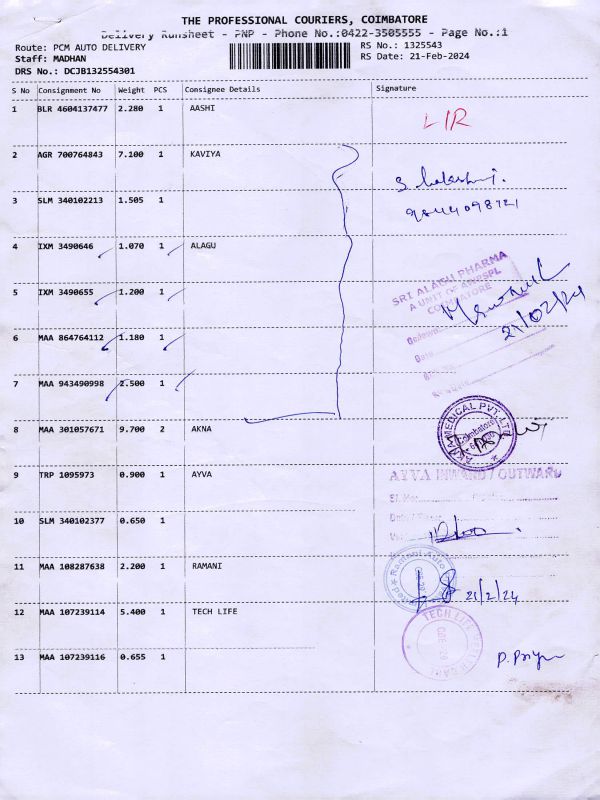 THE PROFESSIONAL COURIERS, COIMBATORE
Delivery Runsheet - PNP - Phone No.:0422-3505555 - Page No.:1
Route: PCM AUTO DELIVERY
RS No.: 1325543
Staff: MADHAN
RS Date: 21-Feb-2024
DRS No.: DCJB132554301
S No Consignment No Weight PCS Consignee Details Signature
1 BLR 4604137477 2.280 1 AASHI
LIR
2 AGR 700764843 7.100 1 KAVIYA
3 SLM 340102213 1.505 1
4 IXM 3490646 1.070 1 ALAGU
SRI ALAGU PHARMA
A UNIT OF
COIMBATORE
5 IXM 3490655 1.200 1
21/02/24
6 MAA 864764112 1.180 1
Date
7 MAA 943490998 2.500 1
8 MAA 301057671 9.700 2 AKNA
MEDICAL PVT. LTD
Coimbatore
9 TRP 1095973 0.900 1 AYVA
AYVA INWARD / OUTWARD
10 SLM 340102377 0.650 1
11 MAA 108287638 2.200 1 RAMANI
Ramani Auto
21/2/24
12 MAA 107239114 5.400 1 TECH LIFE
TECH LIFE
13 MAA 107239116 0.655 1
P. Priya